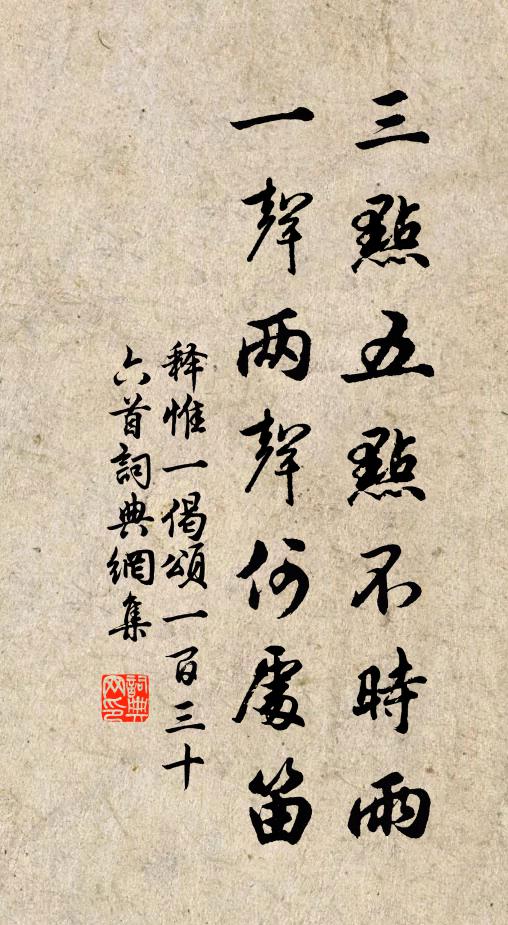 三點五點不時雨
一聲两聲何處笛
释惟一偈頌一百三十
六首詞典網集
詞典
网印